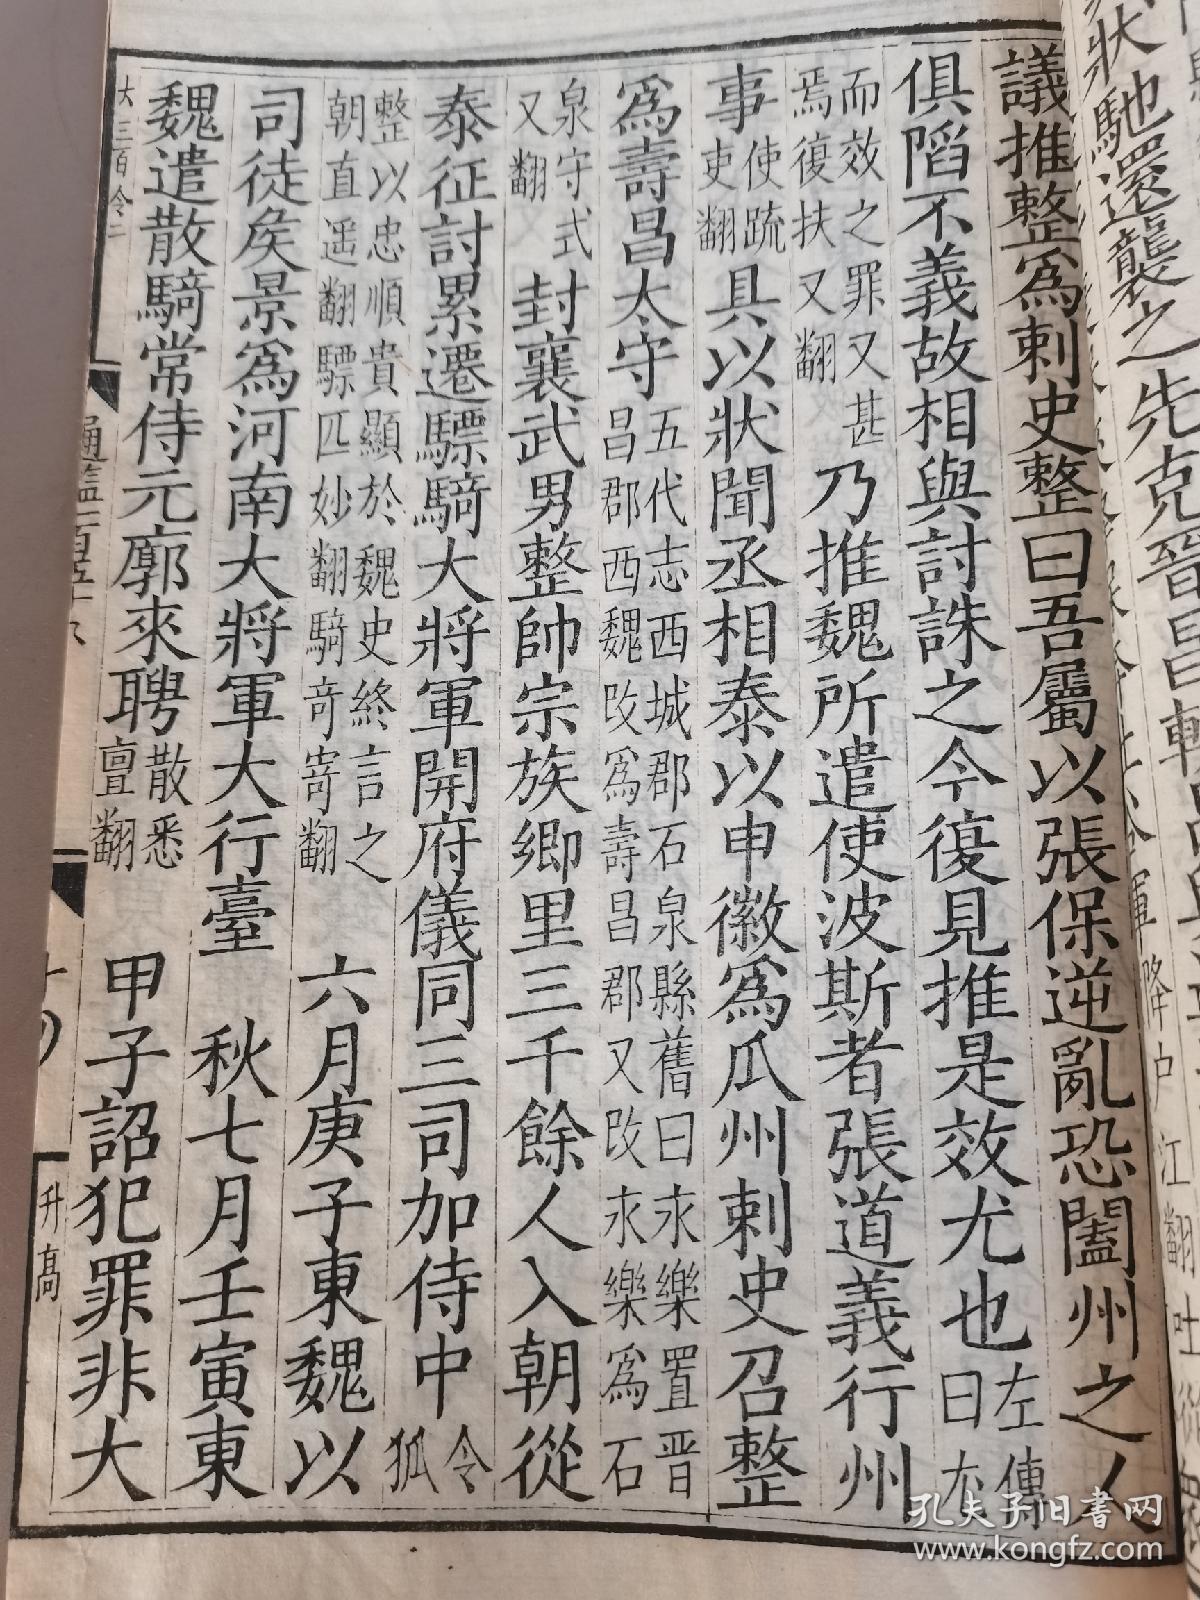 狀馳還襲之先克晉昌
議推整為刺史整曰吾屬以張保逆亂恐闔州之人
俱陷不義故相與討誅之今復見推是效尤也左傳曰尤
而效之罪又甚焉復扶又翻乃推魏所遣使波斯者張道義行州
事使疏吏翻具以狀聞丞相泰以申徽為瓜州刺史召整
為壽昌太守五代志西城郡石泉縣舊曰永樂置晉昌郡西魏改為壽昌郡又改永樂為石
泉守式又翻封襄武男整帥宗族鄉里三千餘人入朝從
泰征討累遷驃騎大將軍開府儀同三司加侍中令狐
整以忠順貴顯於魏史終言之朝直遥翻驃匹妙翻騎奇寄翻六月庚子東魏以
司徒矦景為河南大將軍大行臺秋七月壬寅東
魏遣散騎常侍元廓來聘散悉亶翻甲子詔犯罪非大
大三百令二
通鑑一百五十九
升高
孔夫子旧书网
www.kongfz.com